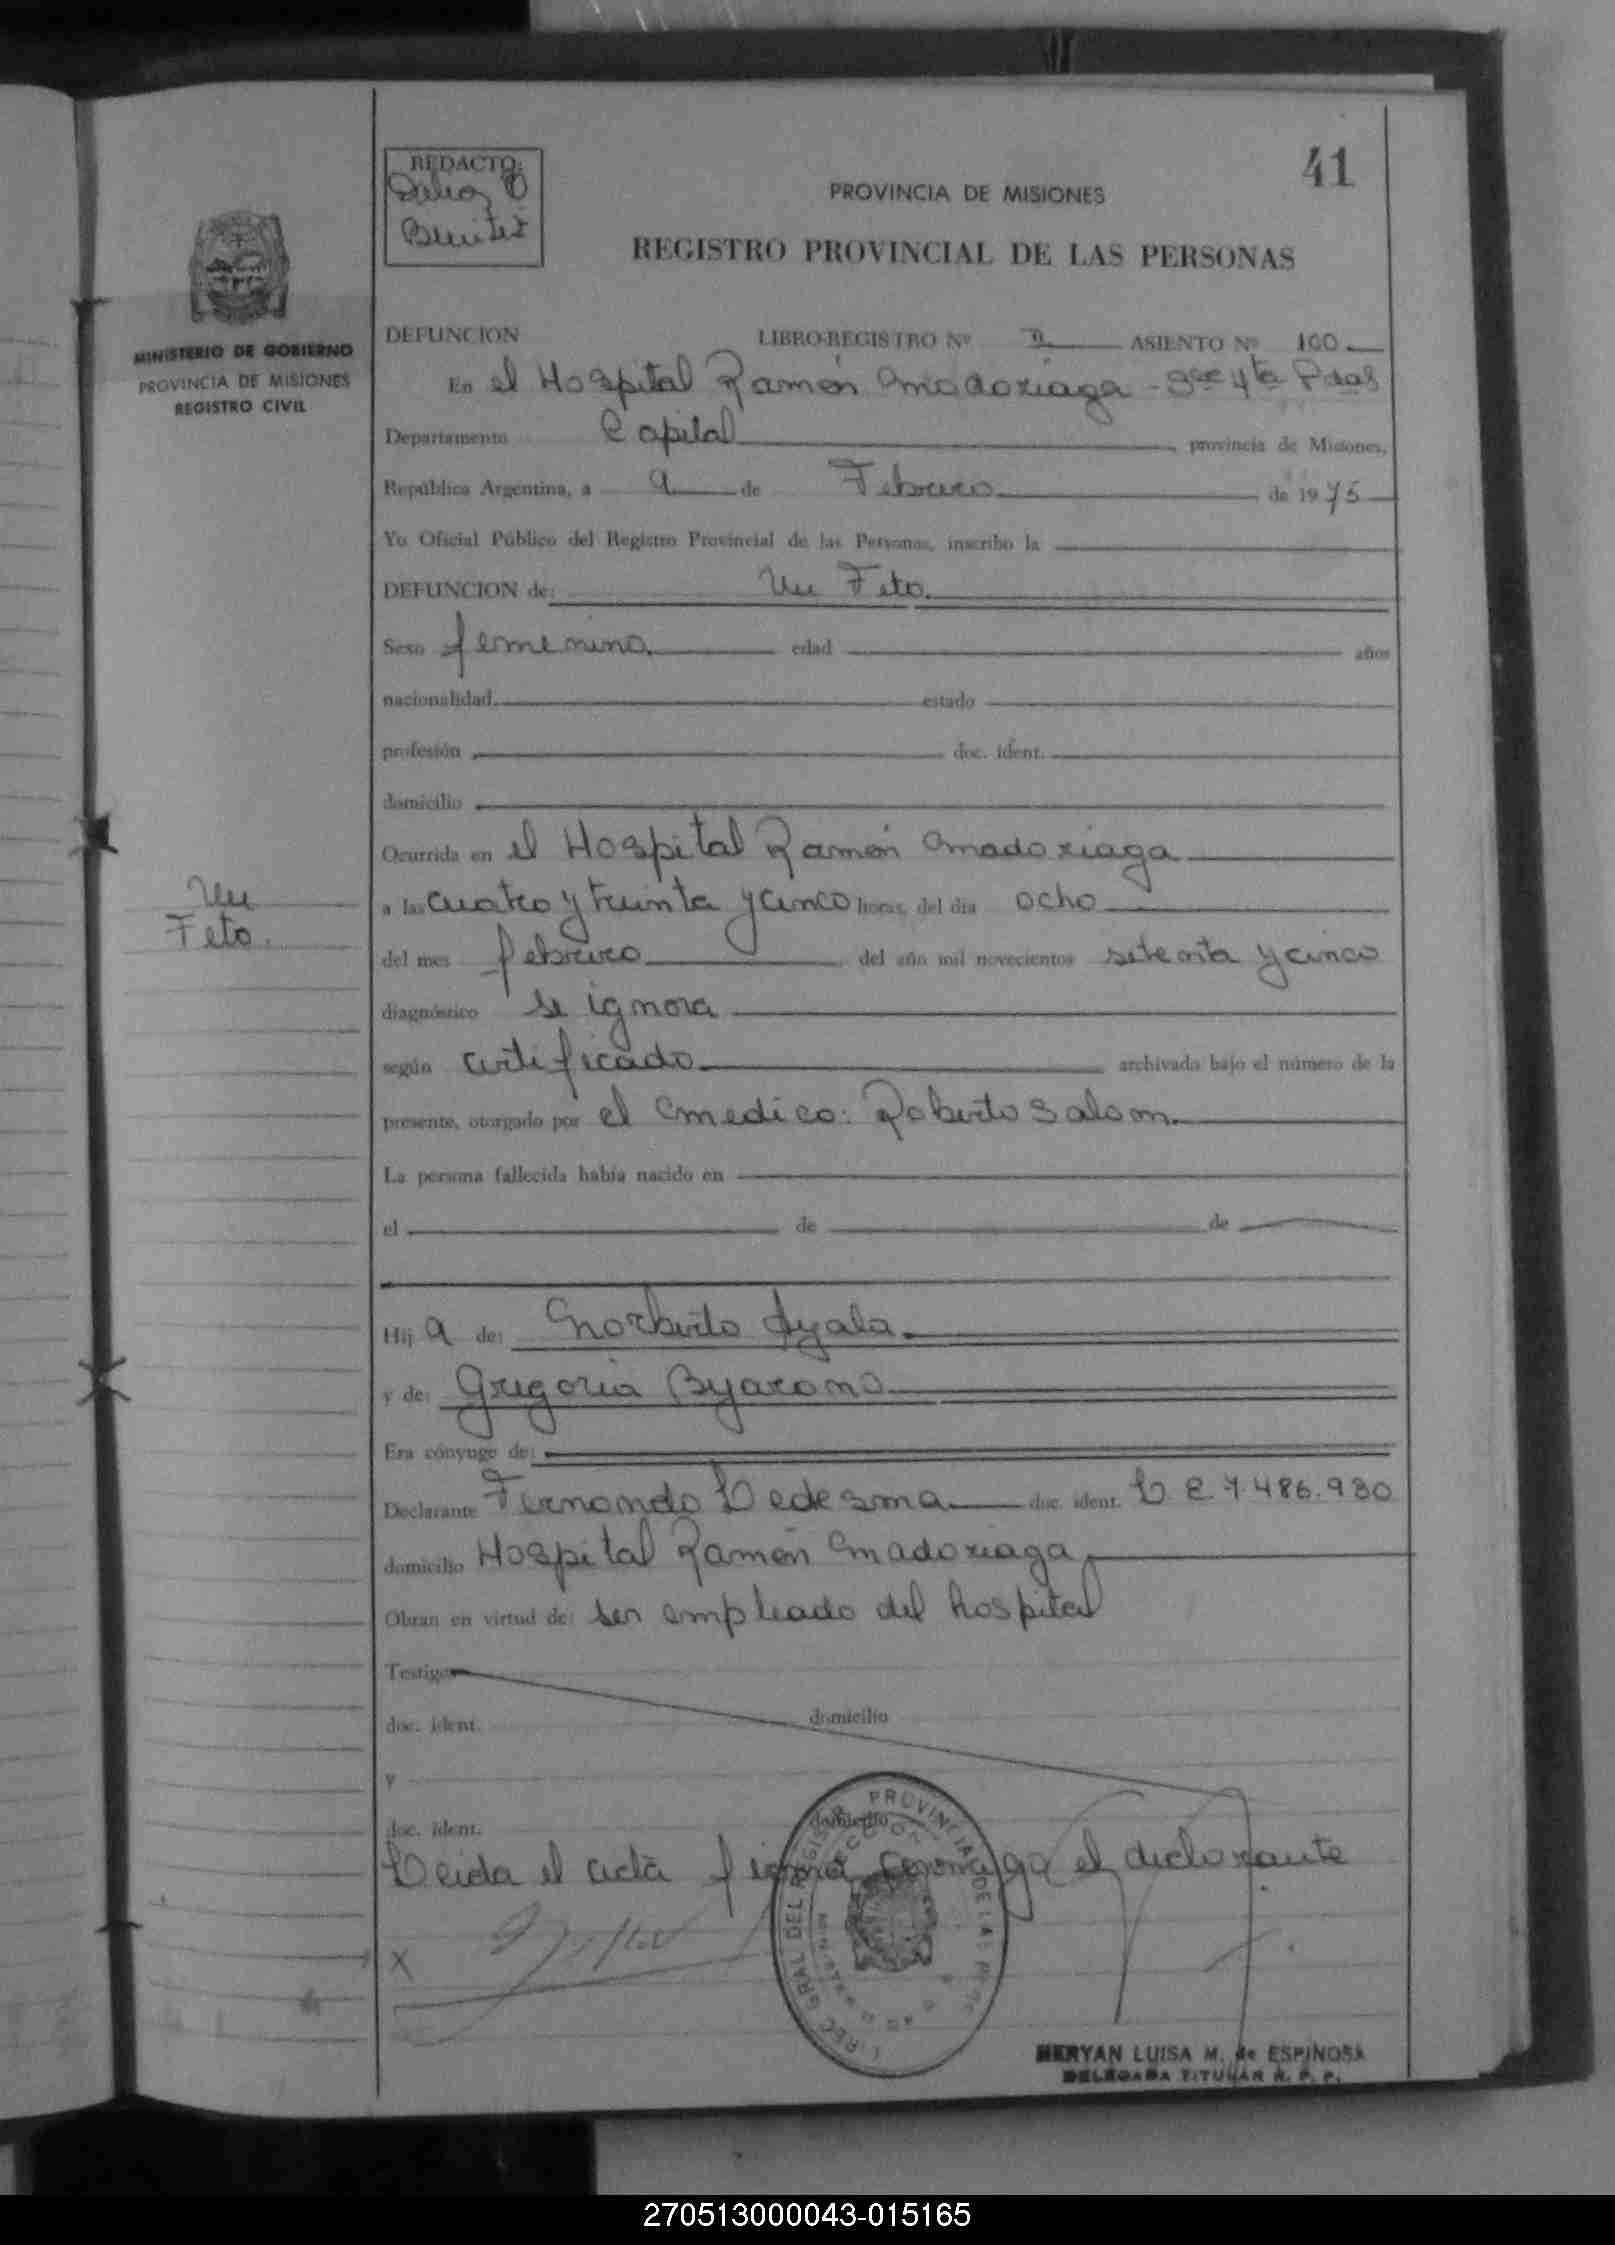 41
REDACTO:
Benitez
PROVINCIA DE MISIONES
REGISTRO PROVINCIAL DE LAS PERSONAS
MINISTERIO DE GOBIERNO
PROVINCIA DE MISIONES
REGISTRO CIVIL
DEFUNCION LIBRO-REGISTRO Nº II ASIENTO Nº 100
En el Hospital Ramón Madoriaga - Sec 4ta Pdas
Departamento Capital provincia de Misiones,
República Argentina, a 9 de Febrero de 1975
Yo Oficial Público del Registro Provincial de las Personas, inscribo la
DEFUNCION de: Un Feto.
Sexo femenino edad años
nacionalidad estado
profesión doc. ident.
domicilio
Ocurrida en el Hospital Ramón Madoriaga
Un
Feto.
a las cuatro y treinta y cinco horas, del día ocho
del mes febrero del año mil novecientos setenta y cinco
diagnóstico se ignora
según certificado archivado bajo el número de la
presente, otorgado por el medico: Roberto Salom.
La persona fallecida había nacido en
el de de
Hij a de: Norberto Ayala
y de: Gregoria Byarono
Era cónyuge de:
Declarante Fernando Ledesma doc. ident. L E 7.486.930
domicilio Hospital Ramón Madoriaga
Obran en virtud de: ser empleado del hospital
Testigos
doc. ident. domicilio
y
doc. ident. domicilio
Leida el acta firma conmigo el declarante
X
DIREC. GRAL. DEL REGISTRO PROVINCIAL DE LAS PERS
MERYAN LUISA M. de ESPINOSA
DELEGADA TITULAR R. P. P.
270513000043-015165